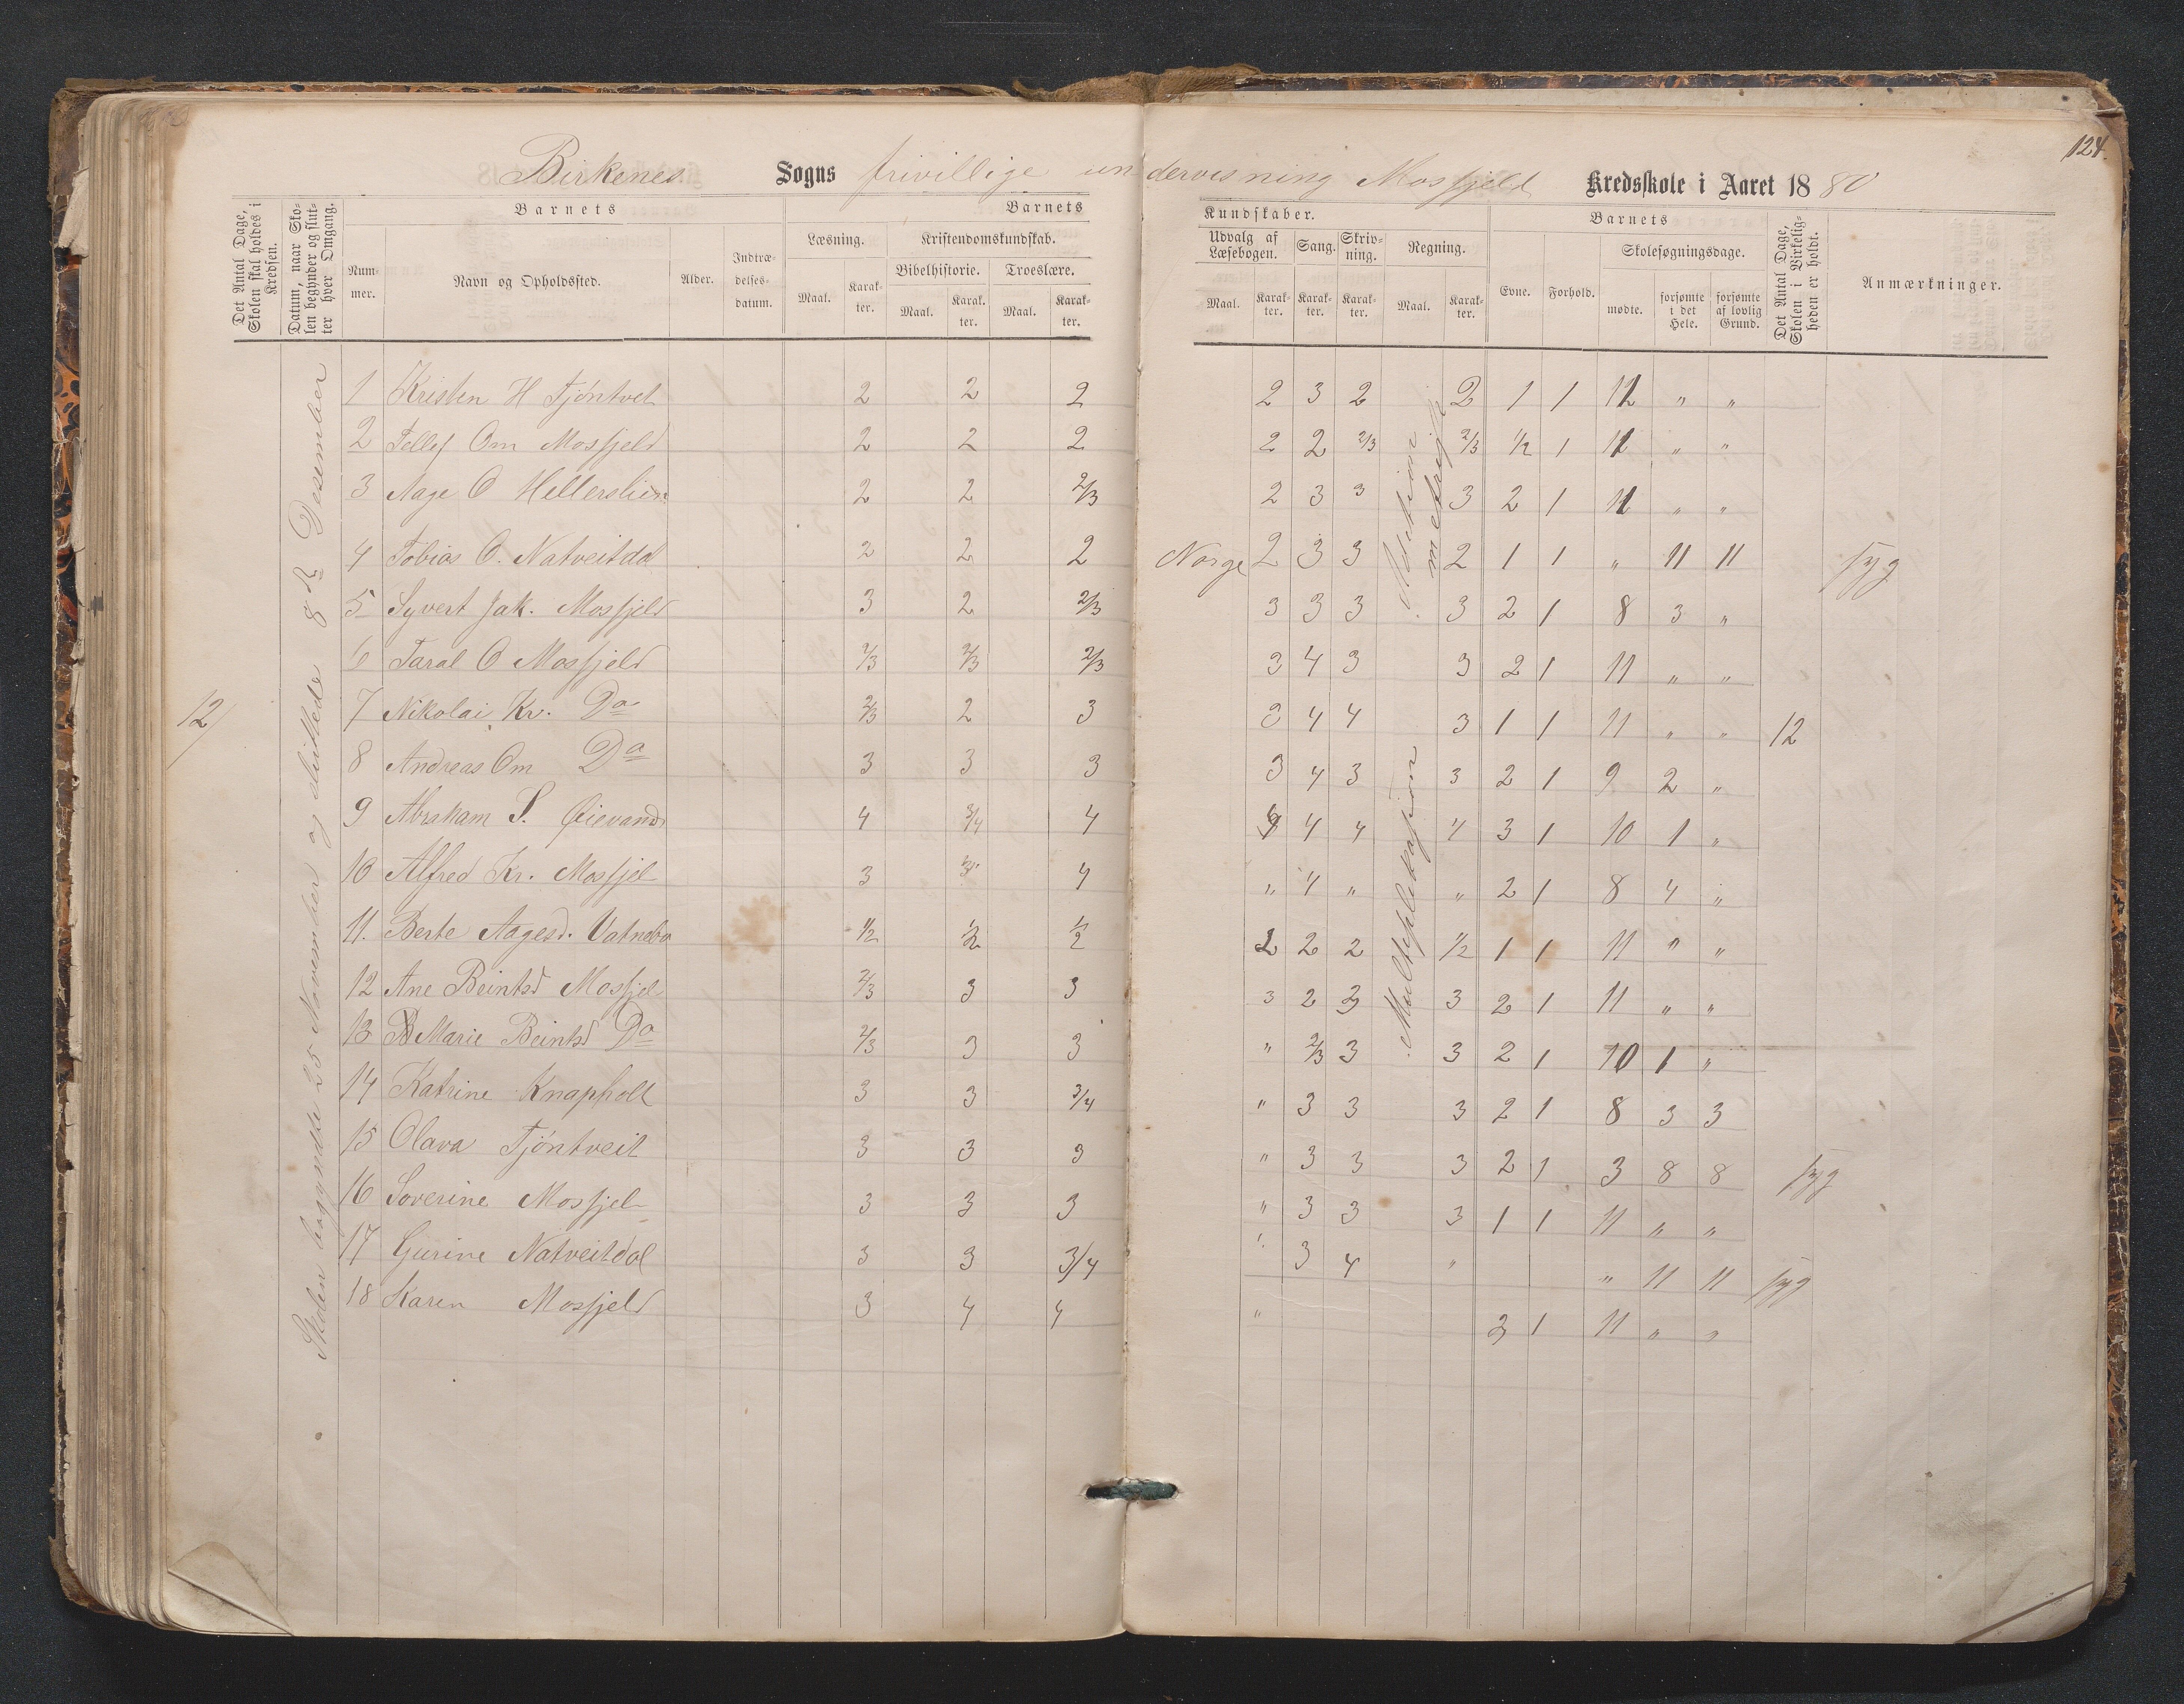 124.
Birkenes Sogns frivillige undervisning Mosfjeld Kredsskole i Aaret 1880
Det Antal Dage, Skolen skal holdes i Kredsen.
Datum, naar Skolen begynder og slutter hver Omgang.
Barnets
Nummer.
Navn og Opholdssted.
Alder.
Indtrædelsesdatum.
Barnets Kundskaber.
Læsning.
Maal.
Karakter.
Kristendomskundskab.
Bibelhistorie.
Maal.
Karakter.
Troeslære.
Maal.
Karakter.
Udvalg af Læsebogen.
Maal.
Karakter.
Sang.
Karakter.
Skrivning.
Karakter.
Regning.
Maal.
Karakter.
Barnets
Evne.
Forhold.
Skolesøgningsdage.
mødte.
forsømte i det Hele.
forsømte af lovlig Grund.
Det Antal Dage, Skolen i Virkeligheden er holdt.
Anmærkninger.
12
Skolen begyndte 25 November og sluttede 8de Desember
1 Kristen H Tjöntvet 2 2 2 2 3 2 2 1 1 11 " "
2 Tellef Om Mosfjeld 2 2 2 2 2 2/3 2/3 1/2 1 11 " "
3 Aage O Hellerslien 2 2 2/3 2 3 3 3 2 1 11 " "
4 Tobias O. Natveitdal 2 2 2 Norge 2 3 3 2 1 1 " 11 11 syg
5 Syvert Jak. Mosfjeld 3 2 2/3 3 3 3 3 2 1 8 3 "
6 Taral O Mosfjeld 2/3 2/3 2/3 3 4 3 3 2 1 11 " "
7 Nikolai Kr. Do 2/3 2 3 3 4 4 3 1 1 11 " " 12
8 Andreas Om Do 3 3 3 3 4 3 3 2 1 9 2 "
9 Abraham S. Øievand 4 3/4 4 4 4 4 4 3 1 10 1 "
10 Alfred Kr. Mosfjel 3 3 4 " 4 " " 2 1 8 4 "
11. Berte Aagesd. Vatnebo 1/2 1/2 1/2 2 2 2 1/2 1 1 11 " "
12 Ane Beintsd Mosfjel 2/3 3 3 3 2 3 3 2 1 11 " "
13 Marie Beintsd Do 2/3 3 3 " 2/3 3 3 2 1 10 1 "
14 Katrine Knapholt 3 3 3/4 " 3 3 3 2 1 8 3 3
15 Olava Tjöntveit 3 3 3 " 3 3 3 2 1 3 8 8 syg
16 Soverine Mosfjel 3 3 3 " 3 3 3 1 1 11 " "
17 Gurine Natveitdal 3 3 3/4 " 3 4 " " 11 11 syg
18 Karen Mosfjeld 3 4 4 " 2 1 11 " "
Multiplikasjon
metrisk